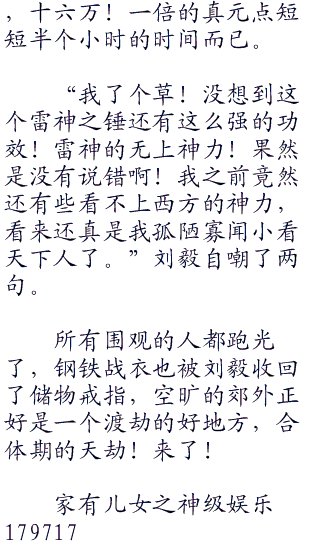 ，十六万！一倍的真元点短
短半个小时的时间而已。
“我了个草！没想到这
个雷神之锤还有这么强的功
效！雷神的无上神力！果然
是没有说错啊！我之前竟然
还有些看不上西方的神力，
看来还真是我孤陋寡闻小看
天下人了。”刘毅自嘲了两
句。
所有围观的人都跑光
了，钢铁战衣也被刘毅收回
了储物戒指，空旷的郊外正
好是一个渡劫的好地方，合
体期的天劫！来了！
家有儿女之神级娱乐
179717